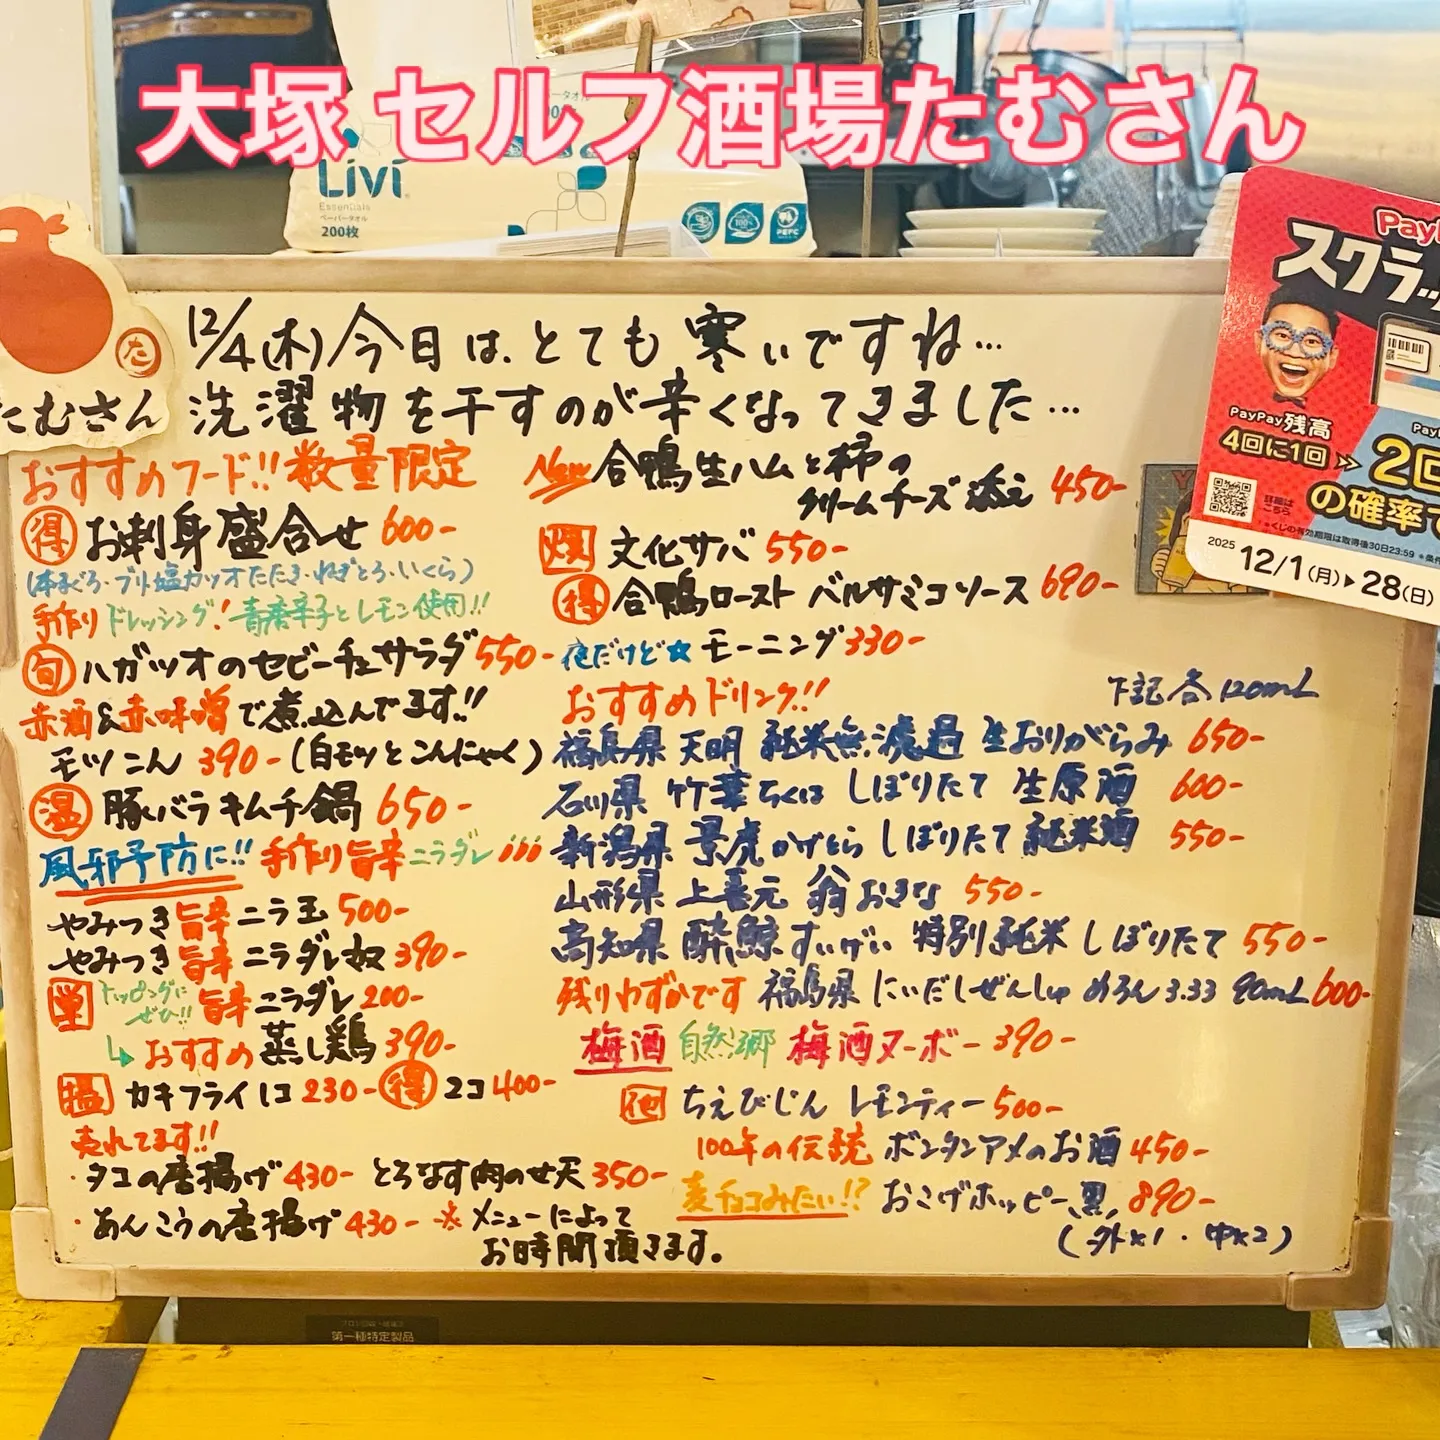 大塚 セルフ酒場たむさん
Livi
Essentials
ペーパータオル
200枚
PEFC
た
たむさん
12/4(木)今日は、とても寒いですね…
洗濯物を干すのが辛くなってきました…
おすすめフード!!数量限定
得 お刺身盛合せ 600-
(本まぐろ・ブリ・塩カツオたたき・ねぎとろ・いくら)
手作りドレッシング!青唐辛子とレモン使用!!
旬 ハガツオのセビーチェサラダ 550-
赤酒&赤味噌で煮込んでます!!
モツこん 390-(白モツとこんにゃく)
温 豚バラキムチ鍋 650-
風邪予防に!! 手作り旨辛ニラダレ
やみつき旨辛ニラ玉 500-
やみつき旨辛ニラダレ奴 390-
単 トッピングにぜひ!! 旨辛ニラダレ 200-
おすすめ蒸し鶏 390-
揚 カキフライ1コ 230- 得 2コ 400-
売れてます!!
・タコの唐揚げ 430- とろなす肉のせ天 350-
・あんこうの唐揚げ 430- ※メニューによって
お時間頂きます。
New 合鴨生ハムと柿の
クリームチーズ添え 450-
文化サバ 550-
得 合鴨ロースト バルサミコソース 690-
夜だけど☆モーニング 330-
おすすめドリンク!! 下記各120mL
福島県 天明 純米無濾過 生おりがらみ 650-
石川県 竹葉 ちくは しぼりたて 生原酒 600-
新潟県 景虎 かげとら しぼりたて 純米酒 550-
山形県 上喜元 翁 おきな 550-
高知県 酔鯨 すいげい 特別純米 しぼりたて 550-
残りわずかです 福島県 にいだしぜんしゅ めろん 3.33 90mL 600-
梅酒 自然郷 梅酒ヌーボー 390-
他 ちえびじん レモンティー 500-
100年の伝統 ボンタンアメのお酒 450-
麦チョコみたい!? おこげホッピー、黒、890-
(外×1・中×2)
スクラッ
PayPay残高
4回に1回 2回
の確率で
詳細はこちら
2025 12/1(月)▶28(日)
第一種特定製品